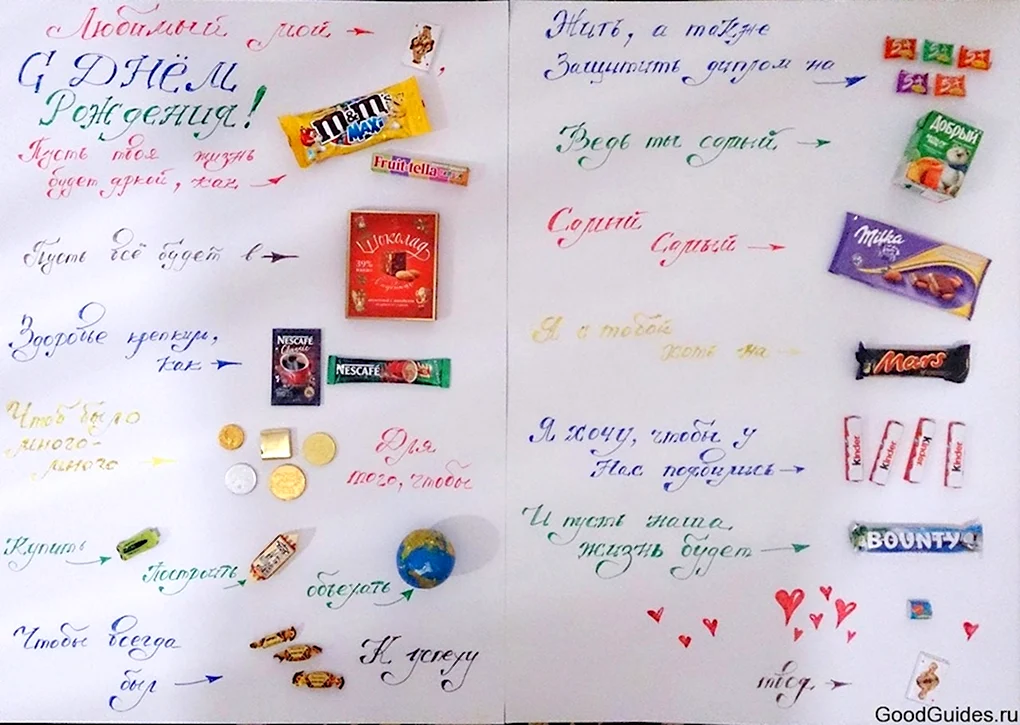 Любимый мой
,
С ДНЁМ
Рождения!
m&m's
MAXI
Пусть твоя жизнь
будет яркой, как
Fruittella
Пусть всё будет в
Шоколад
39%
Здоровье крепким,
как
NESCAFÉ
Classic
NESCAFÉ
Чтоб было
много-
много
Для
того, чтобы
Купить
Построить
объехать
Чтобы всегда
был
К успеху
Жить, а также
Защитить диплом на
5+ 5+ 5+
5+ 5+
Ведь ты самый
ДОБРЫЙ
Самый
Самый
Milka
Я с тобой
хоть на
Mars
Я хочу, чтобы у
Нас появились
Kinder Kinder Kinder Kinder
И пусть наша
жизнь будет
BOUNTY
твоя
GoodGuides.ru